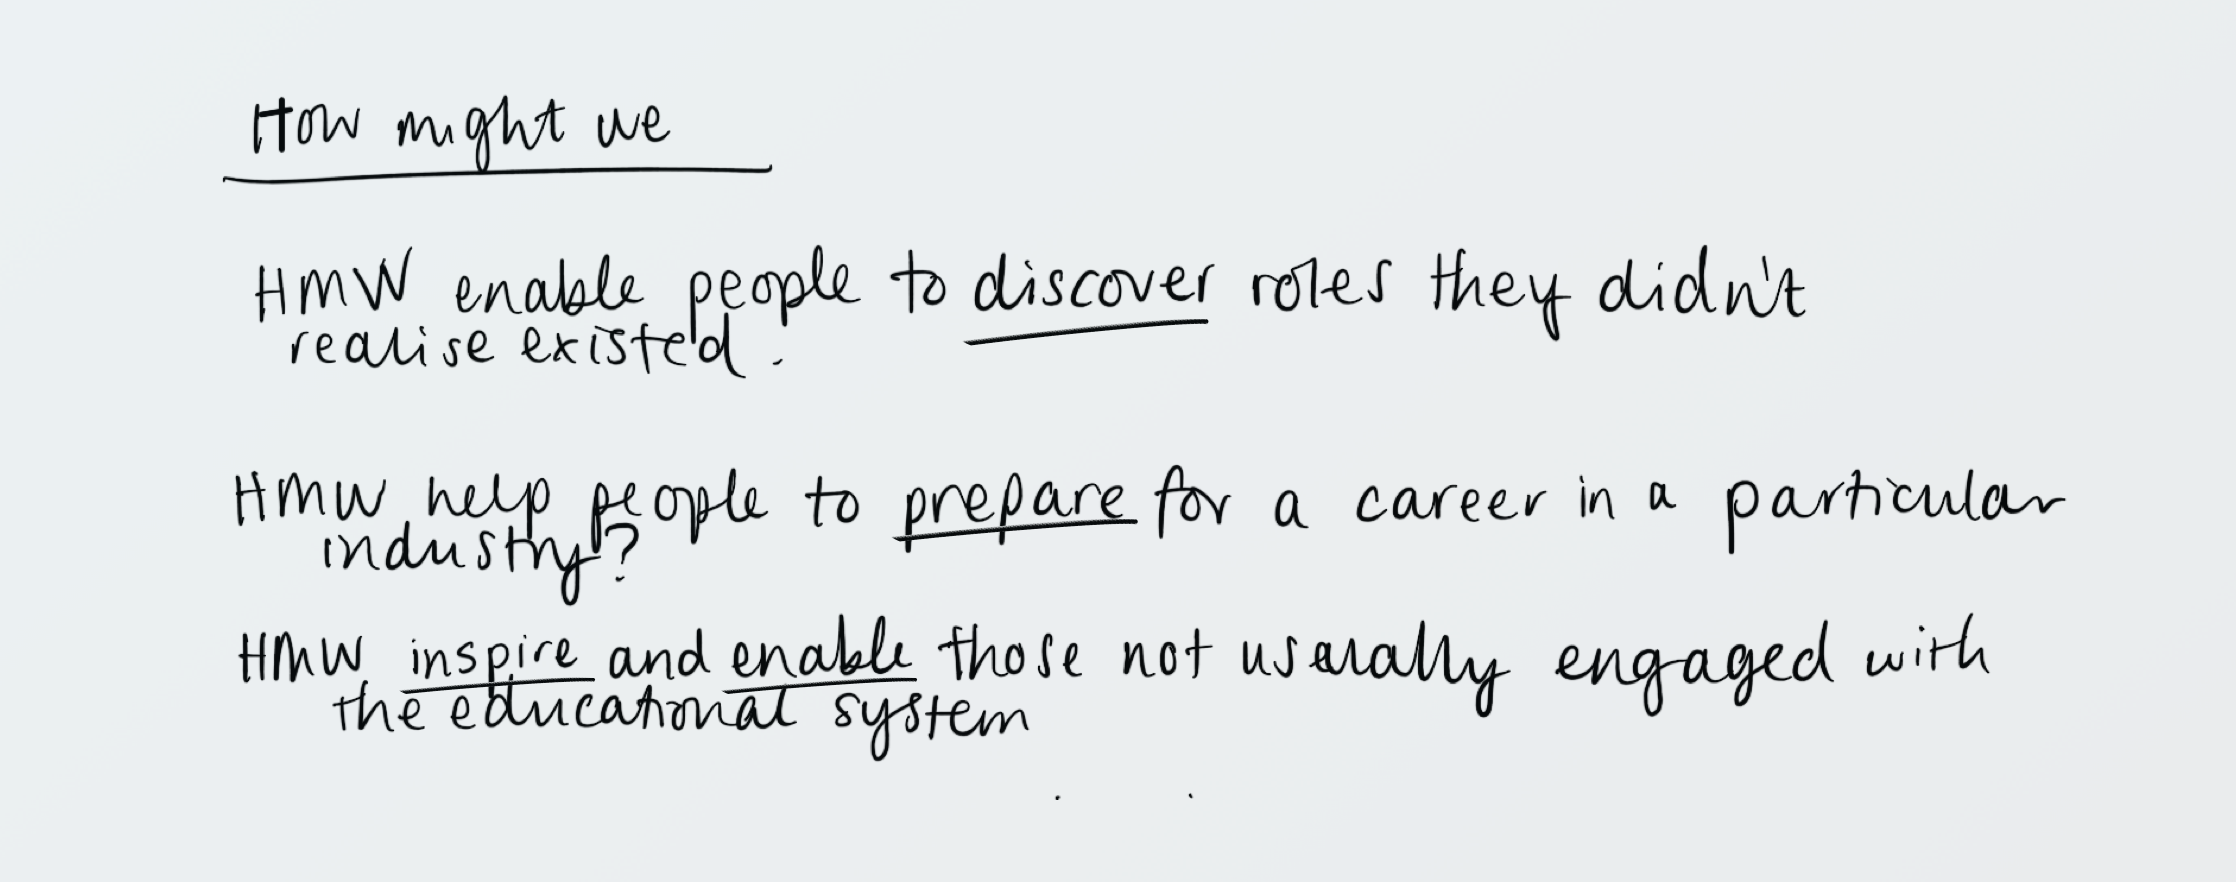 How might we
HMW enable people to discover roles they didn't
realise existed.
HMW help people to prepare for a career in a particular
industry?
HMW inspire and enable those not usually engaged with
the educational system